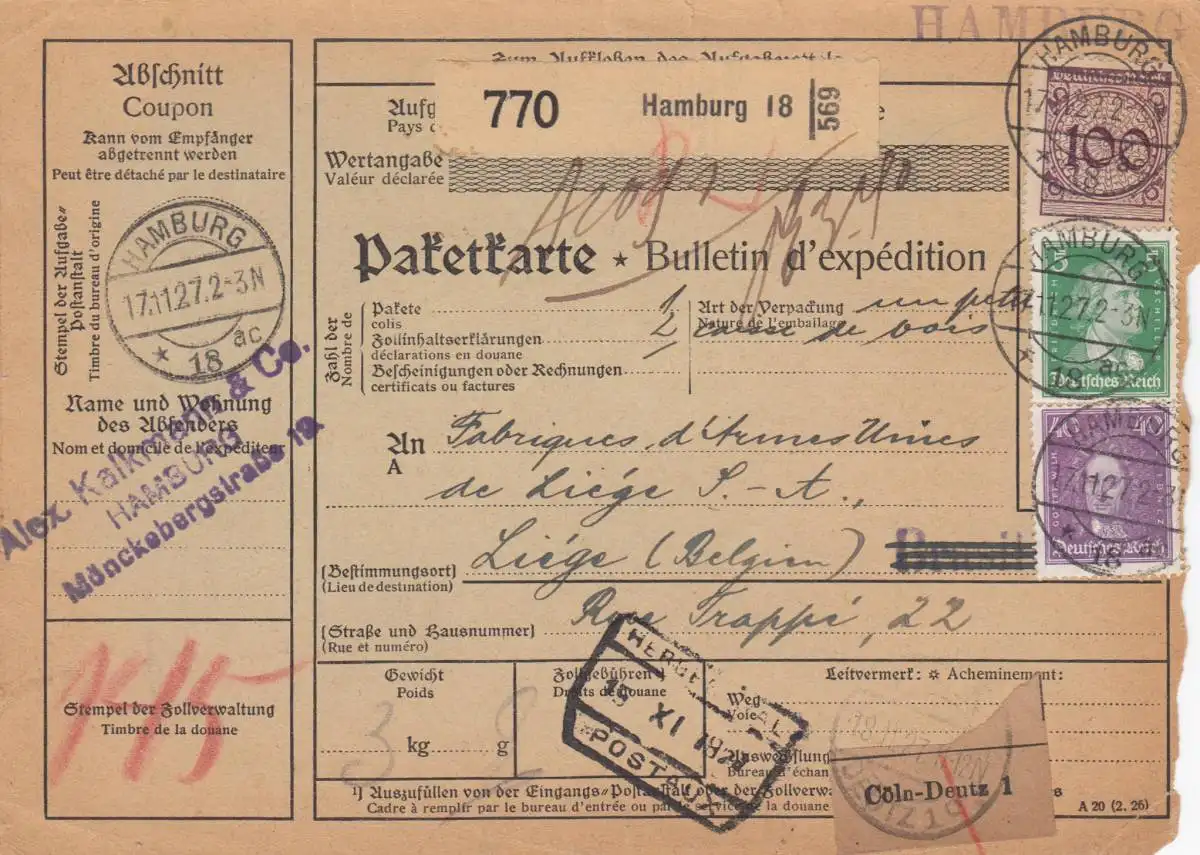 HAMBURG
Abschnitt
Coupon
Kann vom Empfänger
abgetrennt werden
Peut être détaché par le destinataire
Stempel der Aufgabe=
Postanstalt
Timbre du bureau d'origine
HAMBURG
17.11.27.2-3N
* 18 ac
Name und Wohnung
des Absenders
Nom et domicile de l'expéditeur
Alex. Kalkmann & Co.
HAMBURG
Mönckebergstraße 19.
115
Stempel der Zollverwaltung
Timbre de la douane
Zum Aufkleben des
770 Hamburg 18 569
Aufg
Pays d
Wertangabe
Valéur déclarée
Paketkarte * Bulletin d'expédition
Zahl der
Nombre de
Pakete 1
colis
Zollinhaltserklärungen 2
déclarations en douane
Bescheinigungen oder Rechnungen
certificats ou factures
Art der Verpackung un petit
Nature de l'emballage caisse de bois
An Fabriques d'Armes Unies
A
de Liége S.-A.,
(Bestimmungsort) Liége (Belgien)
(Lieu de destination)
(Straße und Hausnummer) Rue Trappé, 22
(Rue et numéro)
Gewicht
Poids
3 kg g
Zollgebühren
Droits de douane
Leitvermerk: * Acheminement:
Weg
Voie
Auswechslung
Bureau d'échan
HERGE
19 XI 192
POSTAUX
18.11.27
Cöln-Deutz 1
¹) Auszufüllen von der Eingangs=Postanstalt oder der Zollverw
Cadre à remplir par le bureau d'entrée ou par le service de la douane
A 20 (2. 26)
Deutsches Reich
100
HAMBURG
17.11.27.2-3N
* 18 ac
5 5
Deutsches Reich
HAMBURG
17.11.27.2-3N
* 18 ac
40 40
Deutsches Reich
HAMBURG
17.11.27.2-3N
* 18